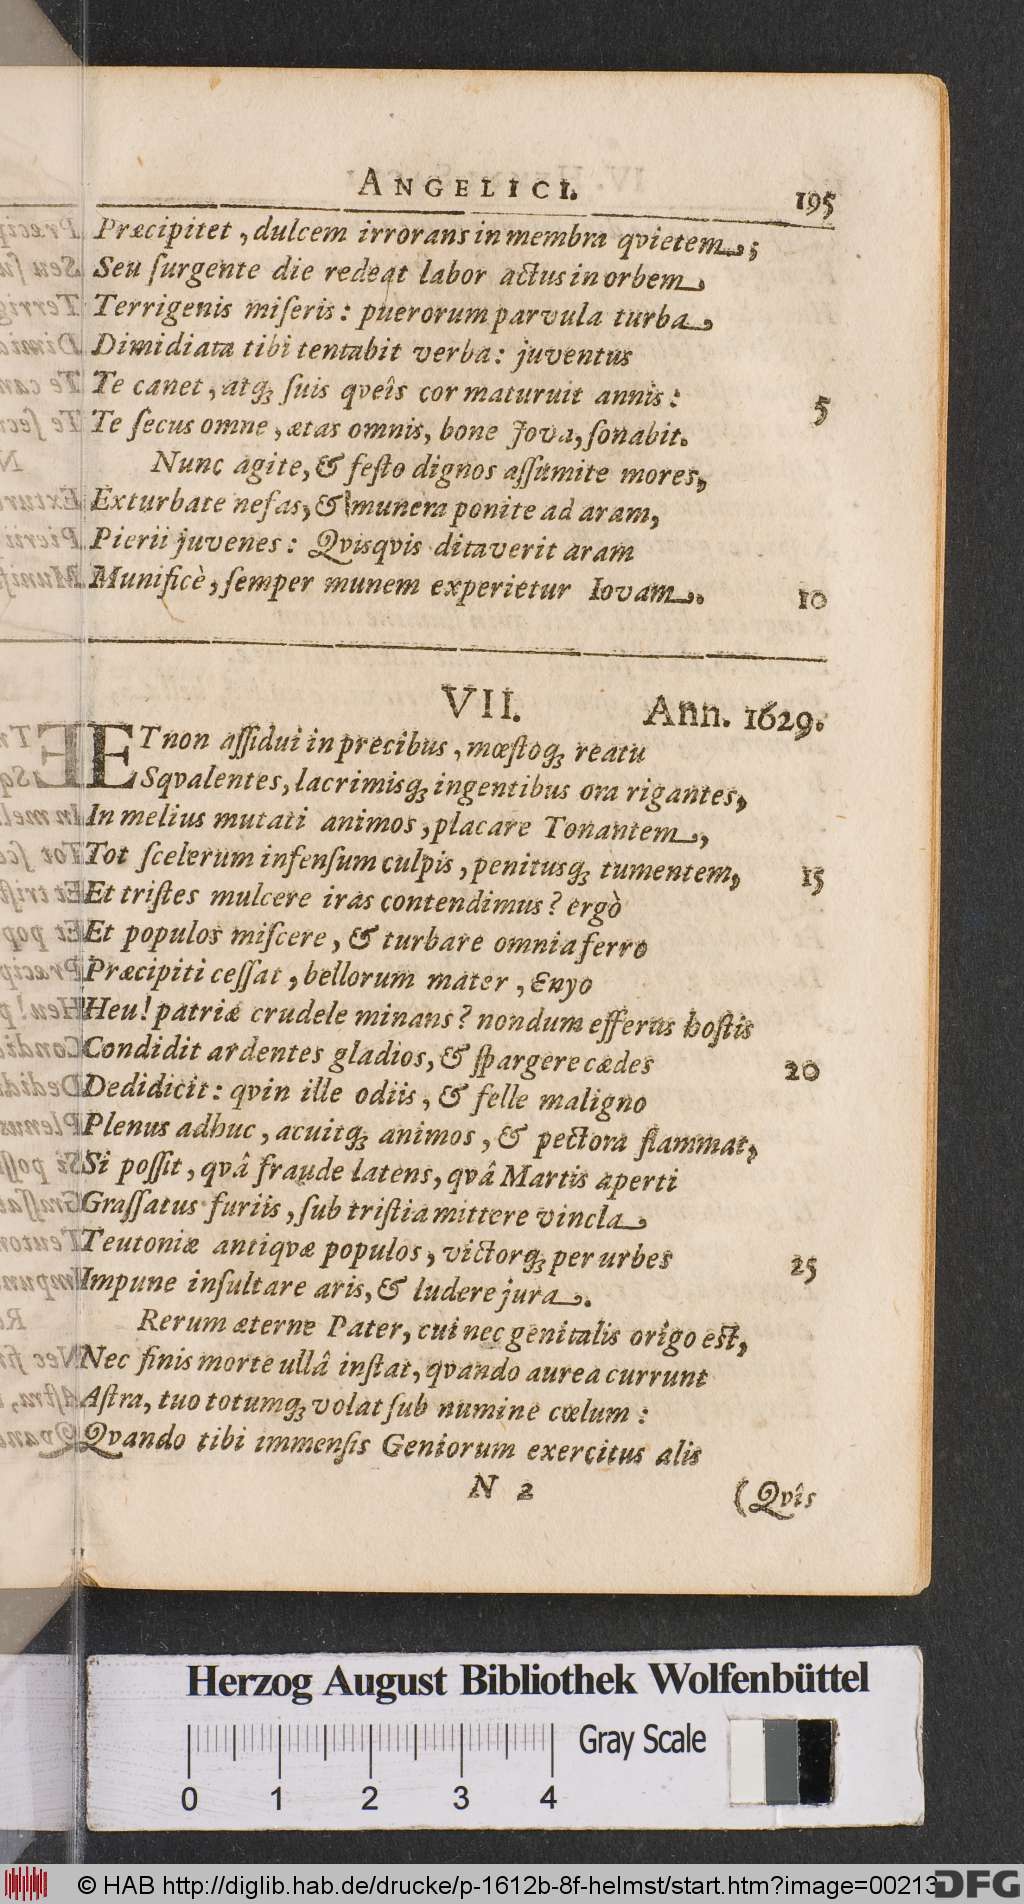 ANGELICI. 195
Præcipitet, dulcem irrorans in membra qvietem;
Seu ſurgente die redeat labor actus in orbem,
Terrigenis miſeris: puerorum parvula turba,
Dimidiata tibi tentabit verba: juventus
Te canet, atq; ſuis qveîs cor maturuit annis: 5
Te ſecus omne, ætas omnis, bone Jova, ſonabit.
Nunc agite, & feſto dignos aſſumite mores,
Exturbate nefas, & munera ponite ad aram,
Pierii juvenes: Qvisqvis ditaverit aram
Munificè, ſemper munem experietur Iovam. 10
VII. Ann. 1629.
ET non aſſidui in precibus, mœſtoq; reatu
Sqvalentes, lacrimisq; ingentibus ora rigantes,
In melius mutati animos, placare Tonantem,
Tot ſcelerum infenſum culpis, penitusq; tumentem, 15
Et triſtes mulcere iras contendimus? ergò
Et populos miſcere, & turbare omnia ferro
Præcipiti ceſſat, bellorum mater, Enyo
Heu! patriæ crudele minans? nondum efferus hoſtis
Condidit ardentes gladios, & ſpargere cædes 20
Dedidicit: qvin ille odiis, & felle maligno
Plenus adhuc, acuitq; animos, & pectora flammat,
Si poſſit, qvâ fraude latens, qvâ Martis aperti
Graſſatus furiis, ſub triſtia mittere vincla,
Teutoniæ antiqvæ populos, victorq; per urbes 25
Impune inſultare aris, & ludere jura.
Rerum æterne Pater, cui nec genitalis origo est,
Nec finis morte ullâ inſtat, qvando aurea currunt
Aſtra, tuo totumq; volat ſub numine cœlum:
Qvando tibi immenſis Geniorum exercitus alis
N 2 (Qvîs
Herzog August Bibliothek Wolfenbüttel
Gray Scale
0 1 2 3 4
© HAB http://diglib.hab.de/drucke/p-1612b-8f-helmst/start.htm?image=00213
DFG